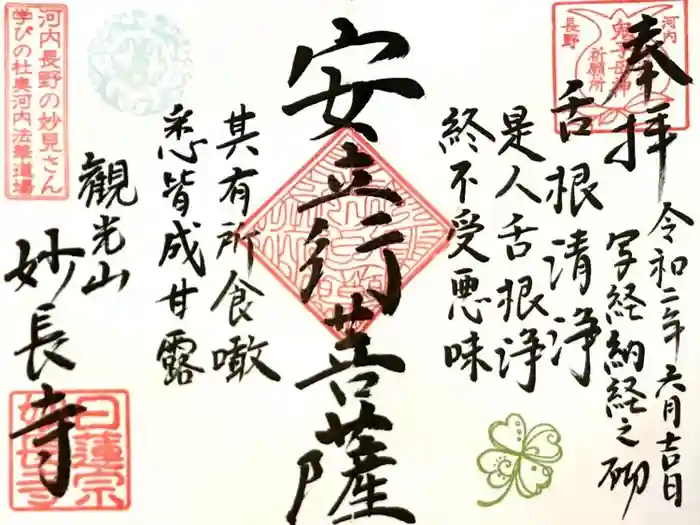 奉拝
河内
長野
鬼子母神
祈願所
令和二年六月吉日
写経納経之砌
舌根清浄
是人舌根浄
終不受悪味
安立行菩薩
其有所食噉
悉皆成甘露
観光山
妙長寺
河内長野の妙見さん
学びの杜奥河内法華道場
日蓮宗
妙長寺